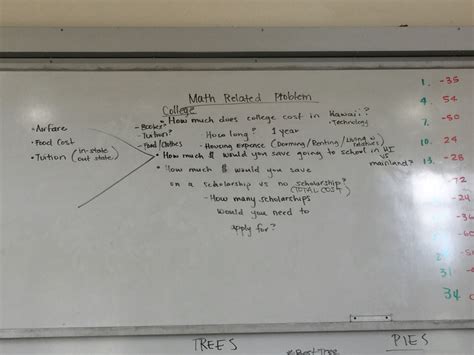 Math Related Problem
College
• How much does college cost in Hawai'i?
- Books?
• Technology
- Tuition?
How long? 1 year
- Food/Clothes
- Housing expense (Dorming/Renting/Living w relatives
• How much $ would you save going to school in HI vs mainland?
• How much $ would you save
on a scholarship vs no scholarship?
(TOTAL COST)
- How many scholarships
would you need to
apply for?
• Airfare
• Food Cost
• Tuition (in-state
out state)
1. -35
4. 54
-50
10. 24
13. -28
-72
-24
-36
-60
31 -4
34 0
TREES
PIES